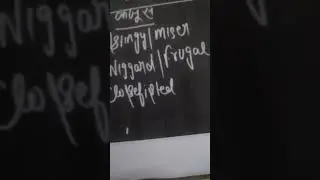 कंजूस
Stingy/miser
Niggard/frugal
Closefisted